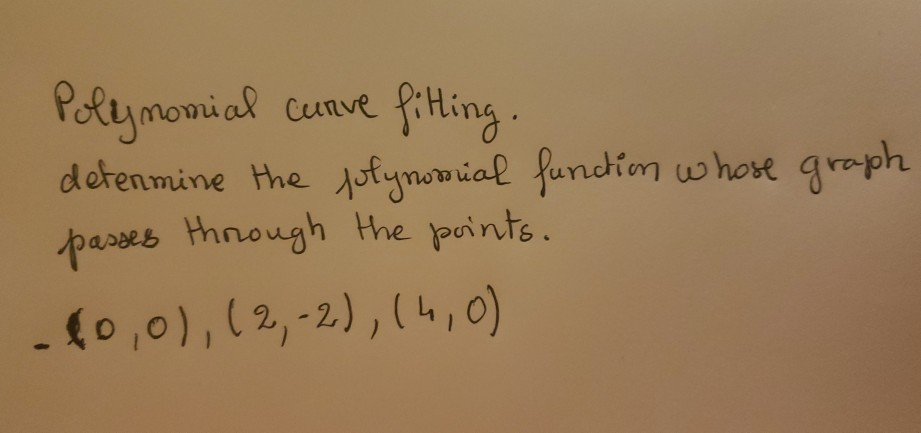 Polynomial curve fitting.
determine the polynomial function whose graph
passes through the points.
- (0,0), (2,-2), (4,0)